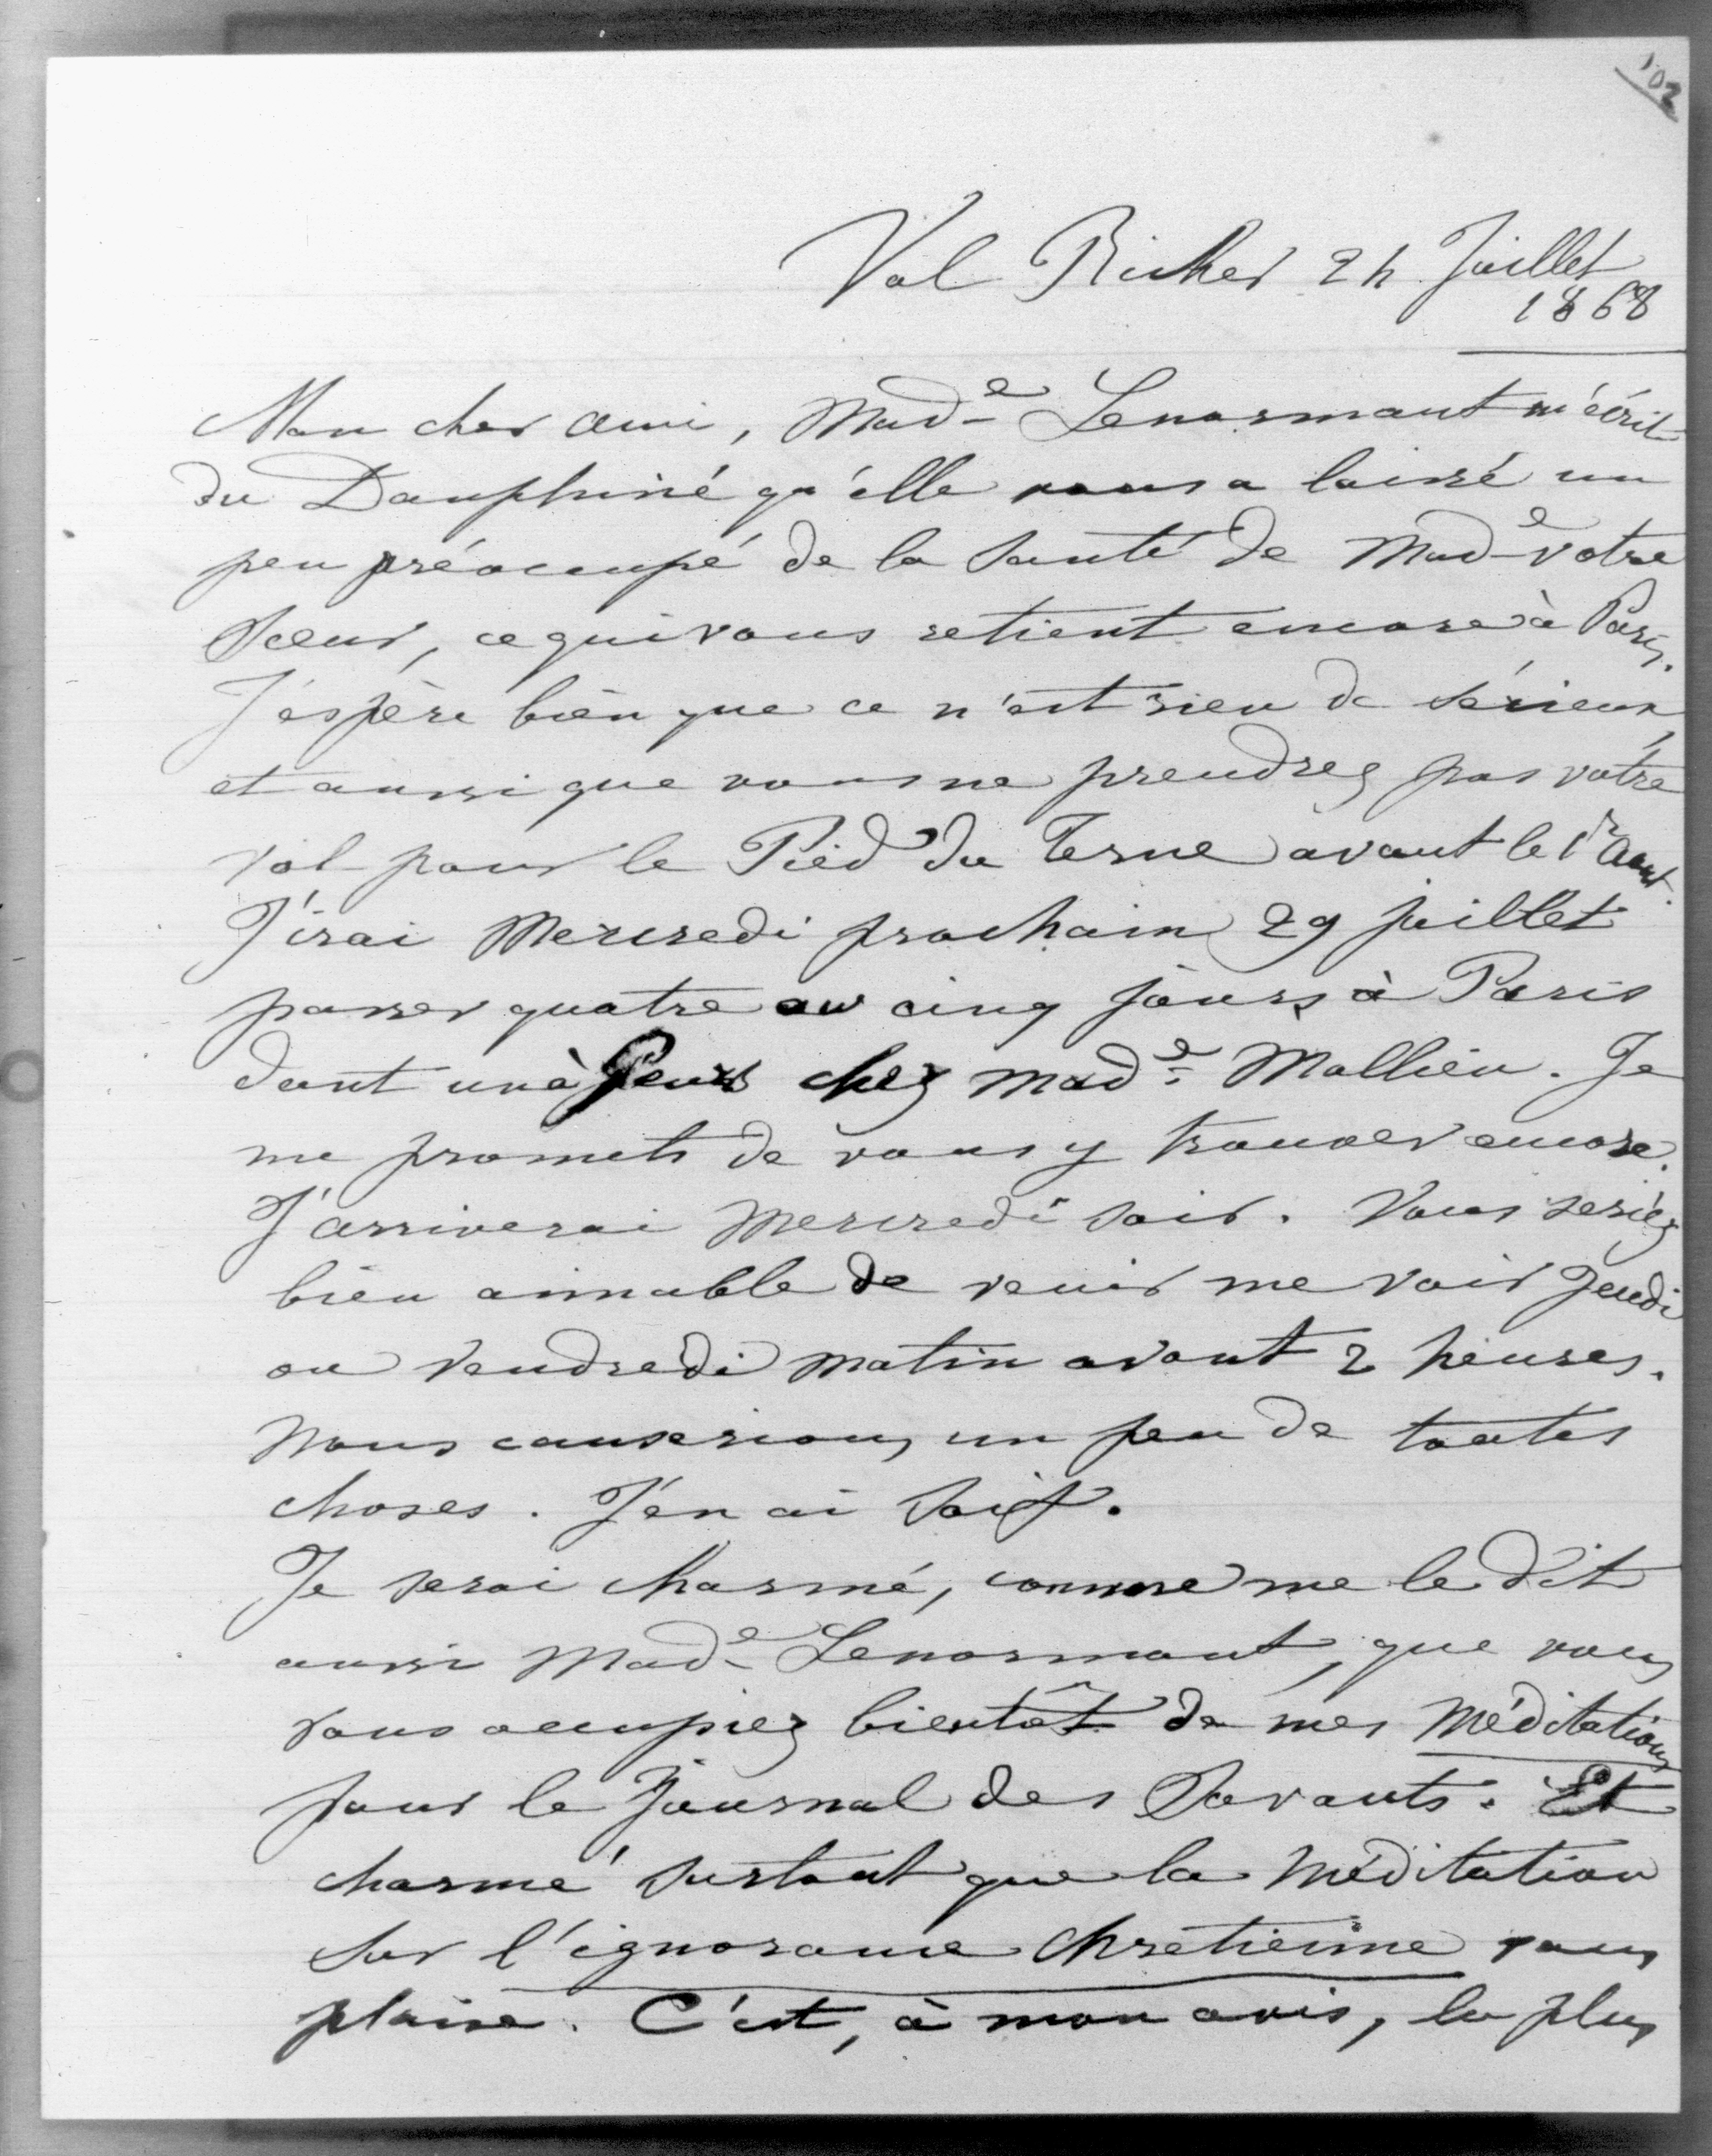 102
Val Richer 24 Juillet
1868
Mon cher ami, Mad.e Lenormant m'écrit
du Dauphiné qu'elle vous a laissé un
peu préoccupé de la santé de Mad.e votre
soeur, ce qui vous retient encore à Paris.
J'espère bien que ce n'est rien de sérieux,
et aussi que vous ne prendrez pas votre
vol pour le Pied du Terne avant le 1r Aout.
J'irai Mercredi prochain 29 juillet
passer quatre ou cinq jours à Paris
dont un à chez Mad.e Mallieu. Je
me promets de vous y trouver encore.
J'arriverai Mercredi soir. Vous seriez
bien aimable de venir me voir Jeudi
ou Vendredi matin avant 2 heures.
Nous causerions un peu de toutes
choses. J'en ai soif.
Je serai charmé, comme me le dit
aussi Mad.e Lenormant, que vous
vous occupiez bientôt de mes Méditations
pour le Journal des Savants. Et
charmé surtout que la Méditation
sur l'ignorance chrétienne vous
plaise. C'est, à mon avis, la plus